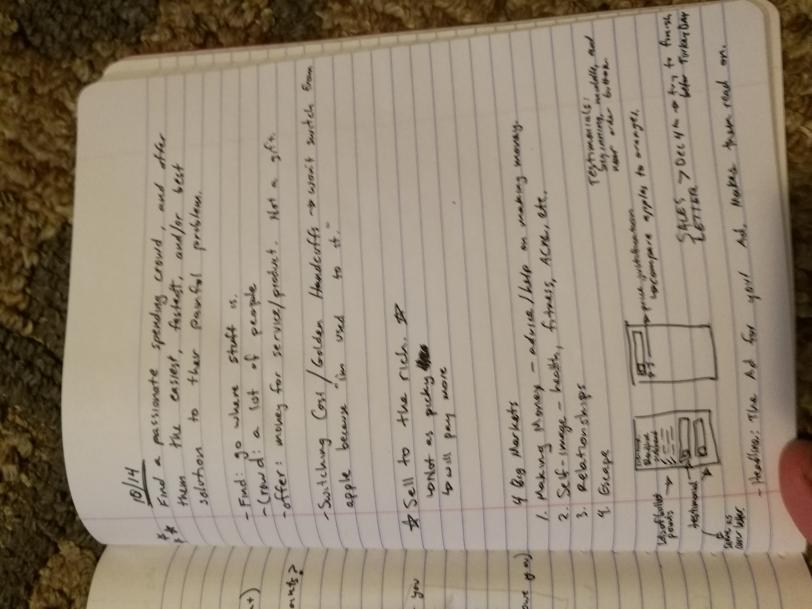 10/14
Find a passionate spending crowd, and offer
them the easiest, fastest, and/or best
solution to their painful problem.
- Find: go where stuff is.
- Crowd: a lot of people
- offer: money for service/product. Not a gift.
- Switching Cost / Golden Handcuffs → won't switch from
apple because "im used to it."
☆ Sell to the rich. ☆
↳ Not as picky
↳ will pay more
4 Big Markets
1. Making Money - advice/help on making money.
2. Self-image - health, fitness, Acne, etc.
3. Relationships
4. Escape
Testimonials:
beginning, middle, and
near order button
Lots of bullet
points
testimonial
same as
cover letter.
→ price justification
↳ compare apples to oranges.
SALES
LETTER > Dec 4th → try to finish
before Turkey Day
- Headline: The Ad for your Ad. Makes them read on.